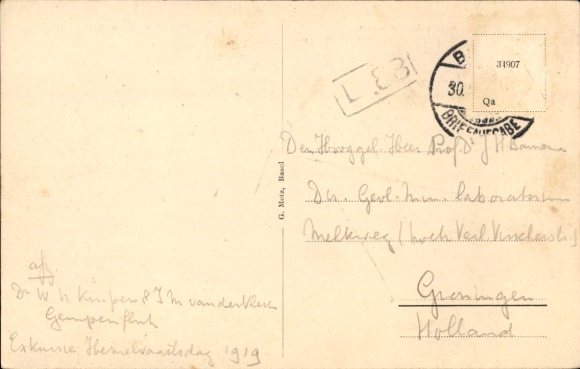 L. E 3
B
30.
BRIEFAUSGABE
34907
Qa
G. Metz, Basel
Den Hooggel. Heer Prof Dr J H Bonnema
Geol. Min. laboratorium
Melkweg (hoek Verl. Visscherstr)
Groningen
Holland
afz
Dr W N Kuiper & J M van der Vlerk
Gempenfluh
Exkursie Hemelvaartsdag 1919